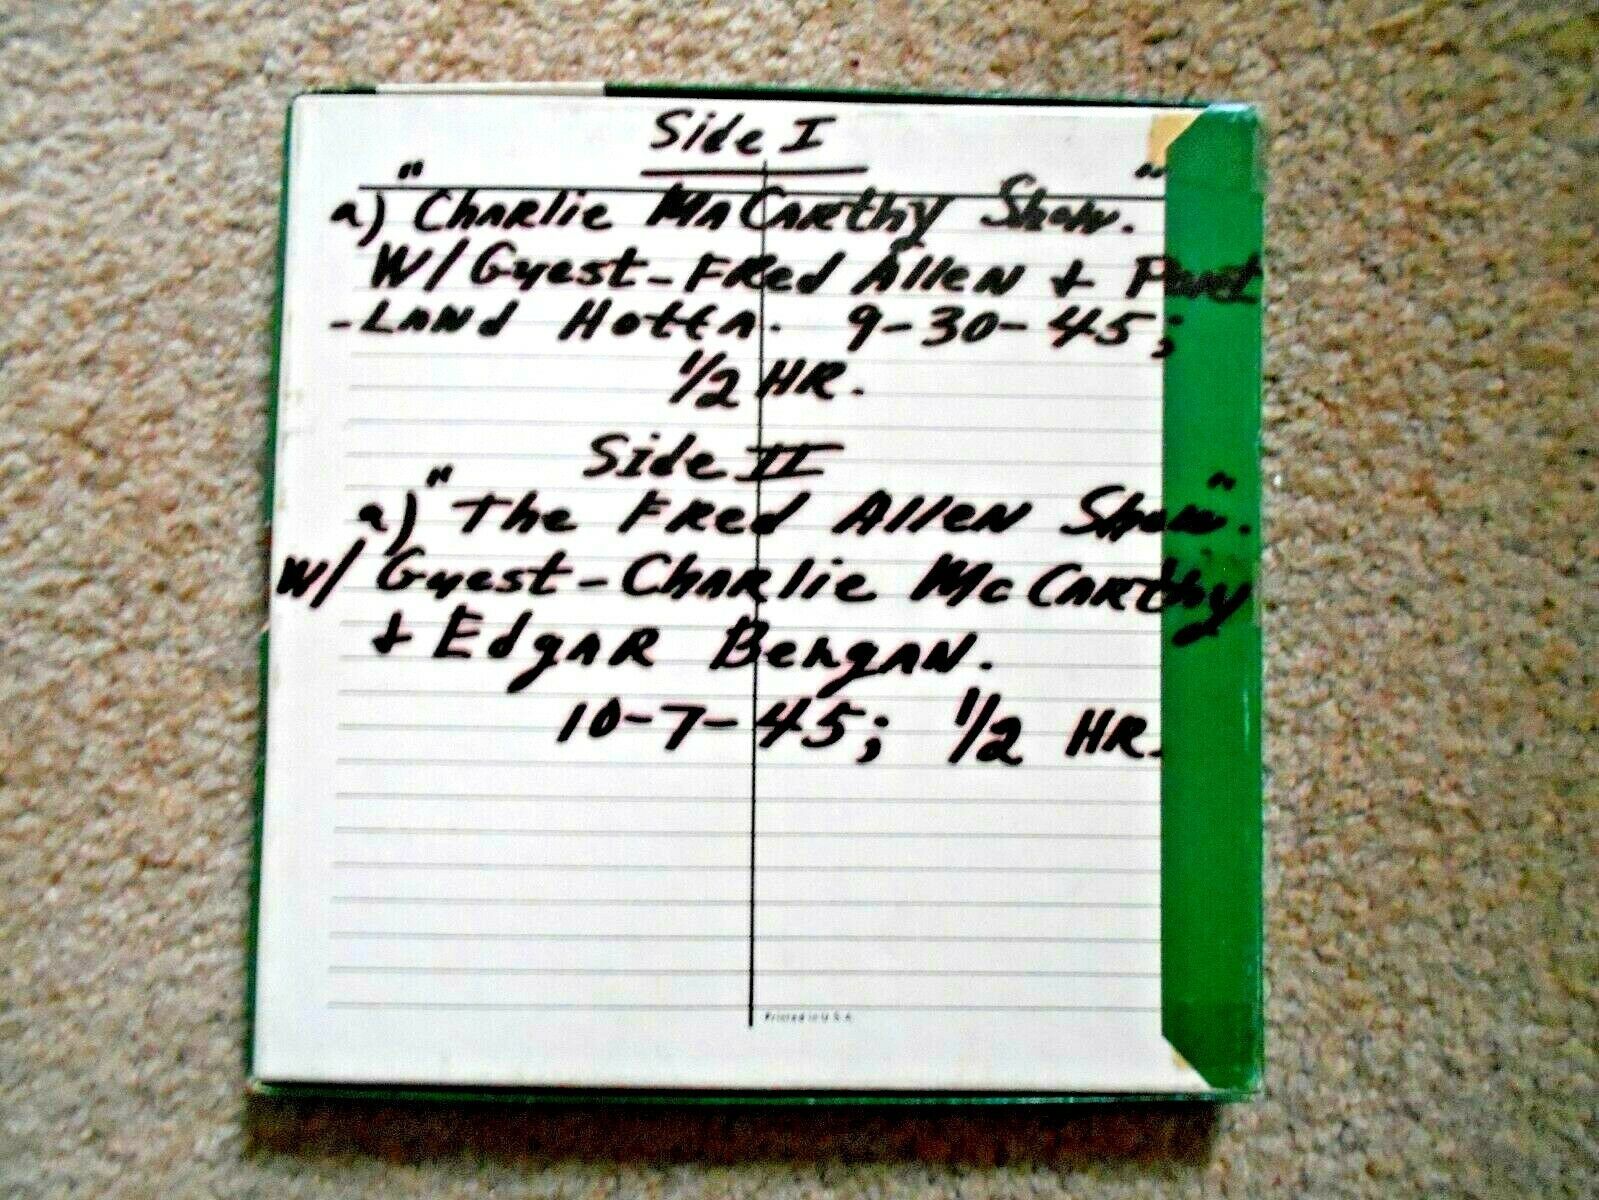 Side I
a) "Charlie MaCarthy Show."
W/ Guest - Fred Allen & Port
-Land Hoffa. 9-30-45;
1/2 HR.
Side II
a) "The Fred Allen Show".
W/ Guest - Charlie McCarthy
& Edgar Bergan.
10-7-45; 1/2 HR.
Printed in U.S.A.